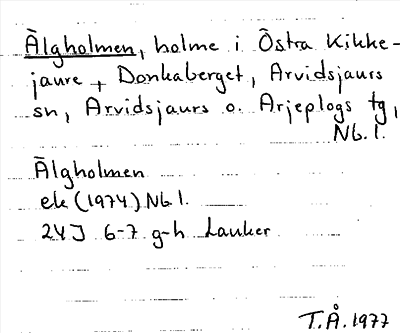 Älgholmen, holme i Östra Kikke-
jaure + Donkaberget, Arvidsjaurs
sn, Arvidsjaurs o. Arjeplogs tg,
Nb. l.
Älgholmen
ek (1974) Nb l.
24J 6-7 g-h Lauker
T.Å. 1977